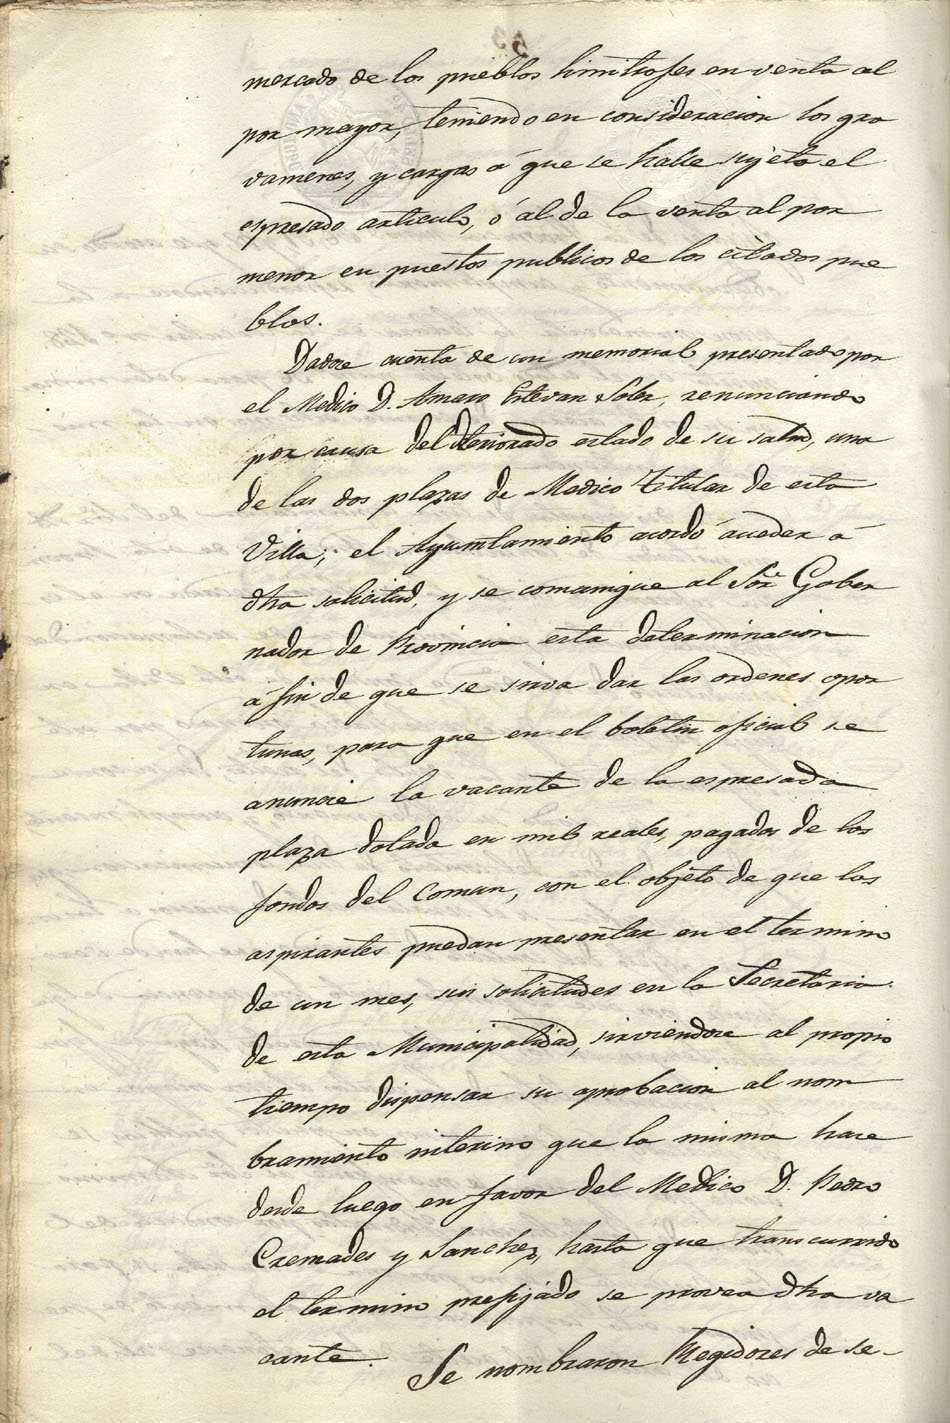 mercado de los pueblos limitrofes en venta al
por mayor, teniendo en consideracion los gra
vamenes, y cargas á que se halle sujeto el
espresado articulo, ó al de la venta al por
menor en puestos publicos de los citados pue
blos.
Dadose cuenta de un memorial presentado por
el Medico D. Amaro Estevan Soler, renunciando
por causa del deteriorado estado de su salud, una
de las dos plazas de Medico Titular de esta
Villa; el Ayuntamiento acordó acceder á
dha solicitud, y se comunique al Sor. Gober
nador de Provincia esta determinacion
á fin de que se sirva dar las ordenes opor
tunas, para que en el boletin oficial se
anuncie la vacante de la espresada
plaza dotada en mil reales, pagados de los
fondos del Comun, con el objeto de que los
aspirantes puedan presentar en el termino
de un mes, sus solicitudes en la Secretaria
de esta Municipalidad, sirviendose al propio
tiempo dispensar su aprobacion al nom
bramiento interino que la misma hace
desde luego en favor del Medico D. Pedro
Cremades y Sanchez, hasta que transcurrido
el termino prefijado se provea dha va
cante.
Se nombraron Regidores de se-